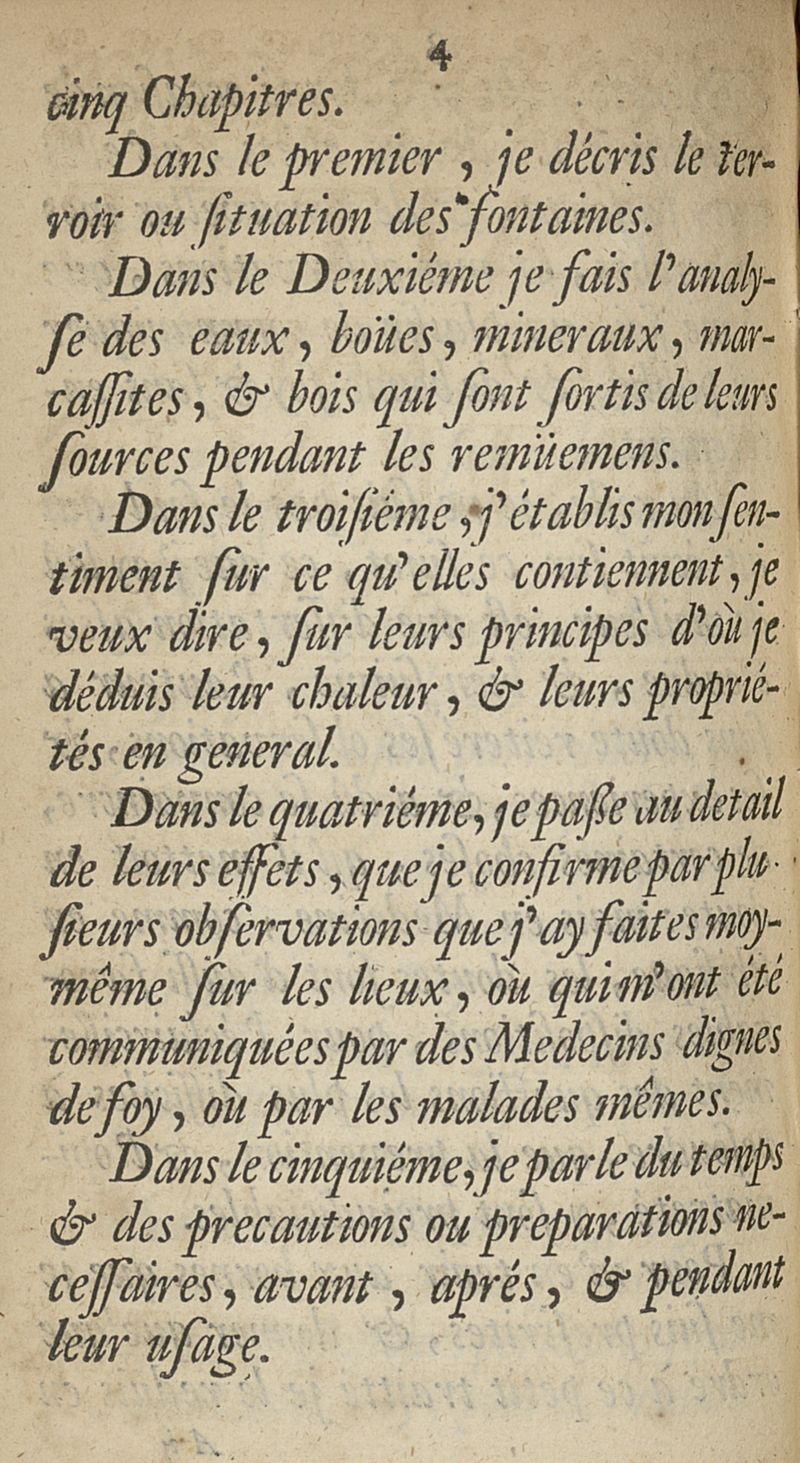 4
cinq Chapitres.
Dans le premier , je décris le ter-
roir ou ſituation des fontaines.
Dans le Deuxiéme je fais l'analy-
ſe des eaux , boües , mineraux , mar-
caſſites , & bois qui ſont ſortis de leurs
ſources pendant les remüemens.
Dans le troiſiéme , j'établis mon ſen-
timent ſur ce qu'elles contiennent , je
veux dire , ſur leurs principes d'où je
déduis leur chaleur , & leurs proprié-
tés en general.
Dans le quatriéme, je paſſe au detail
de leurs effets , que je confirme par plu-
ſieurs obſervations que j'ay faites moy-
même ſur les lieux , où qui m'ont été
communiquées par des Medecins dignes
de foy , où par les malades mêmes.
Dans le cinquiéme, je parle du temps
& des precautions ou preparations ne-
ceſſaires , avant , aprés , & pendant
leur uſage.